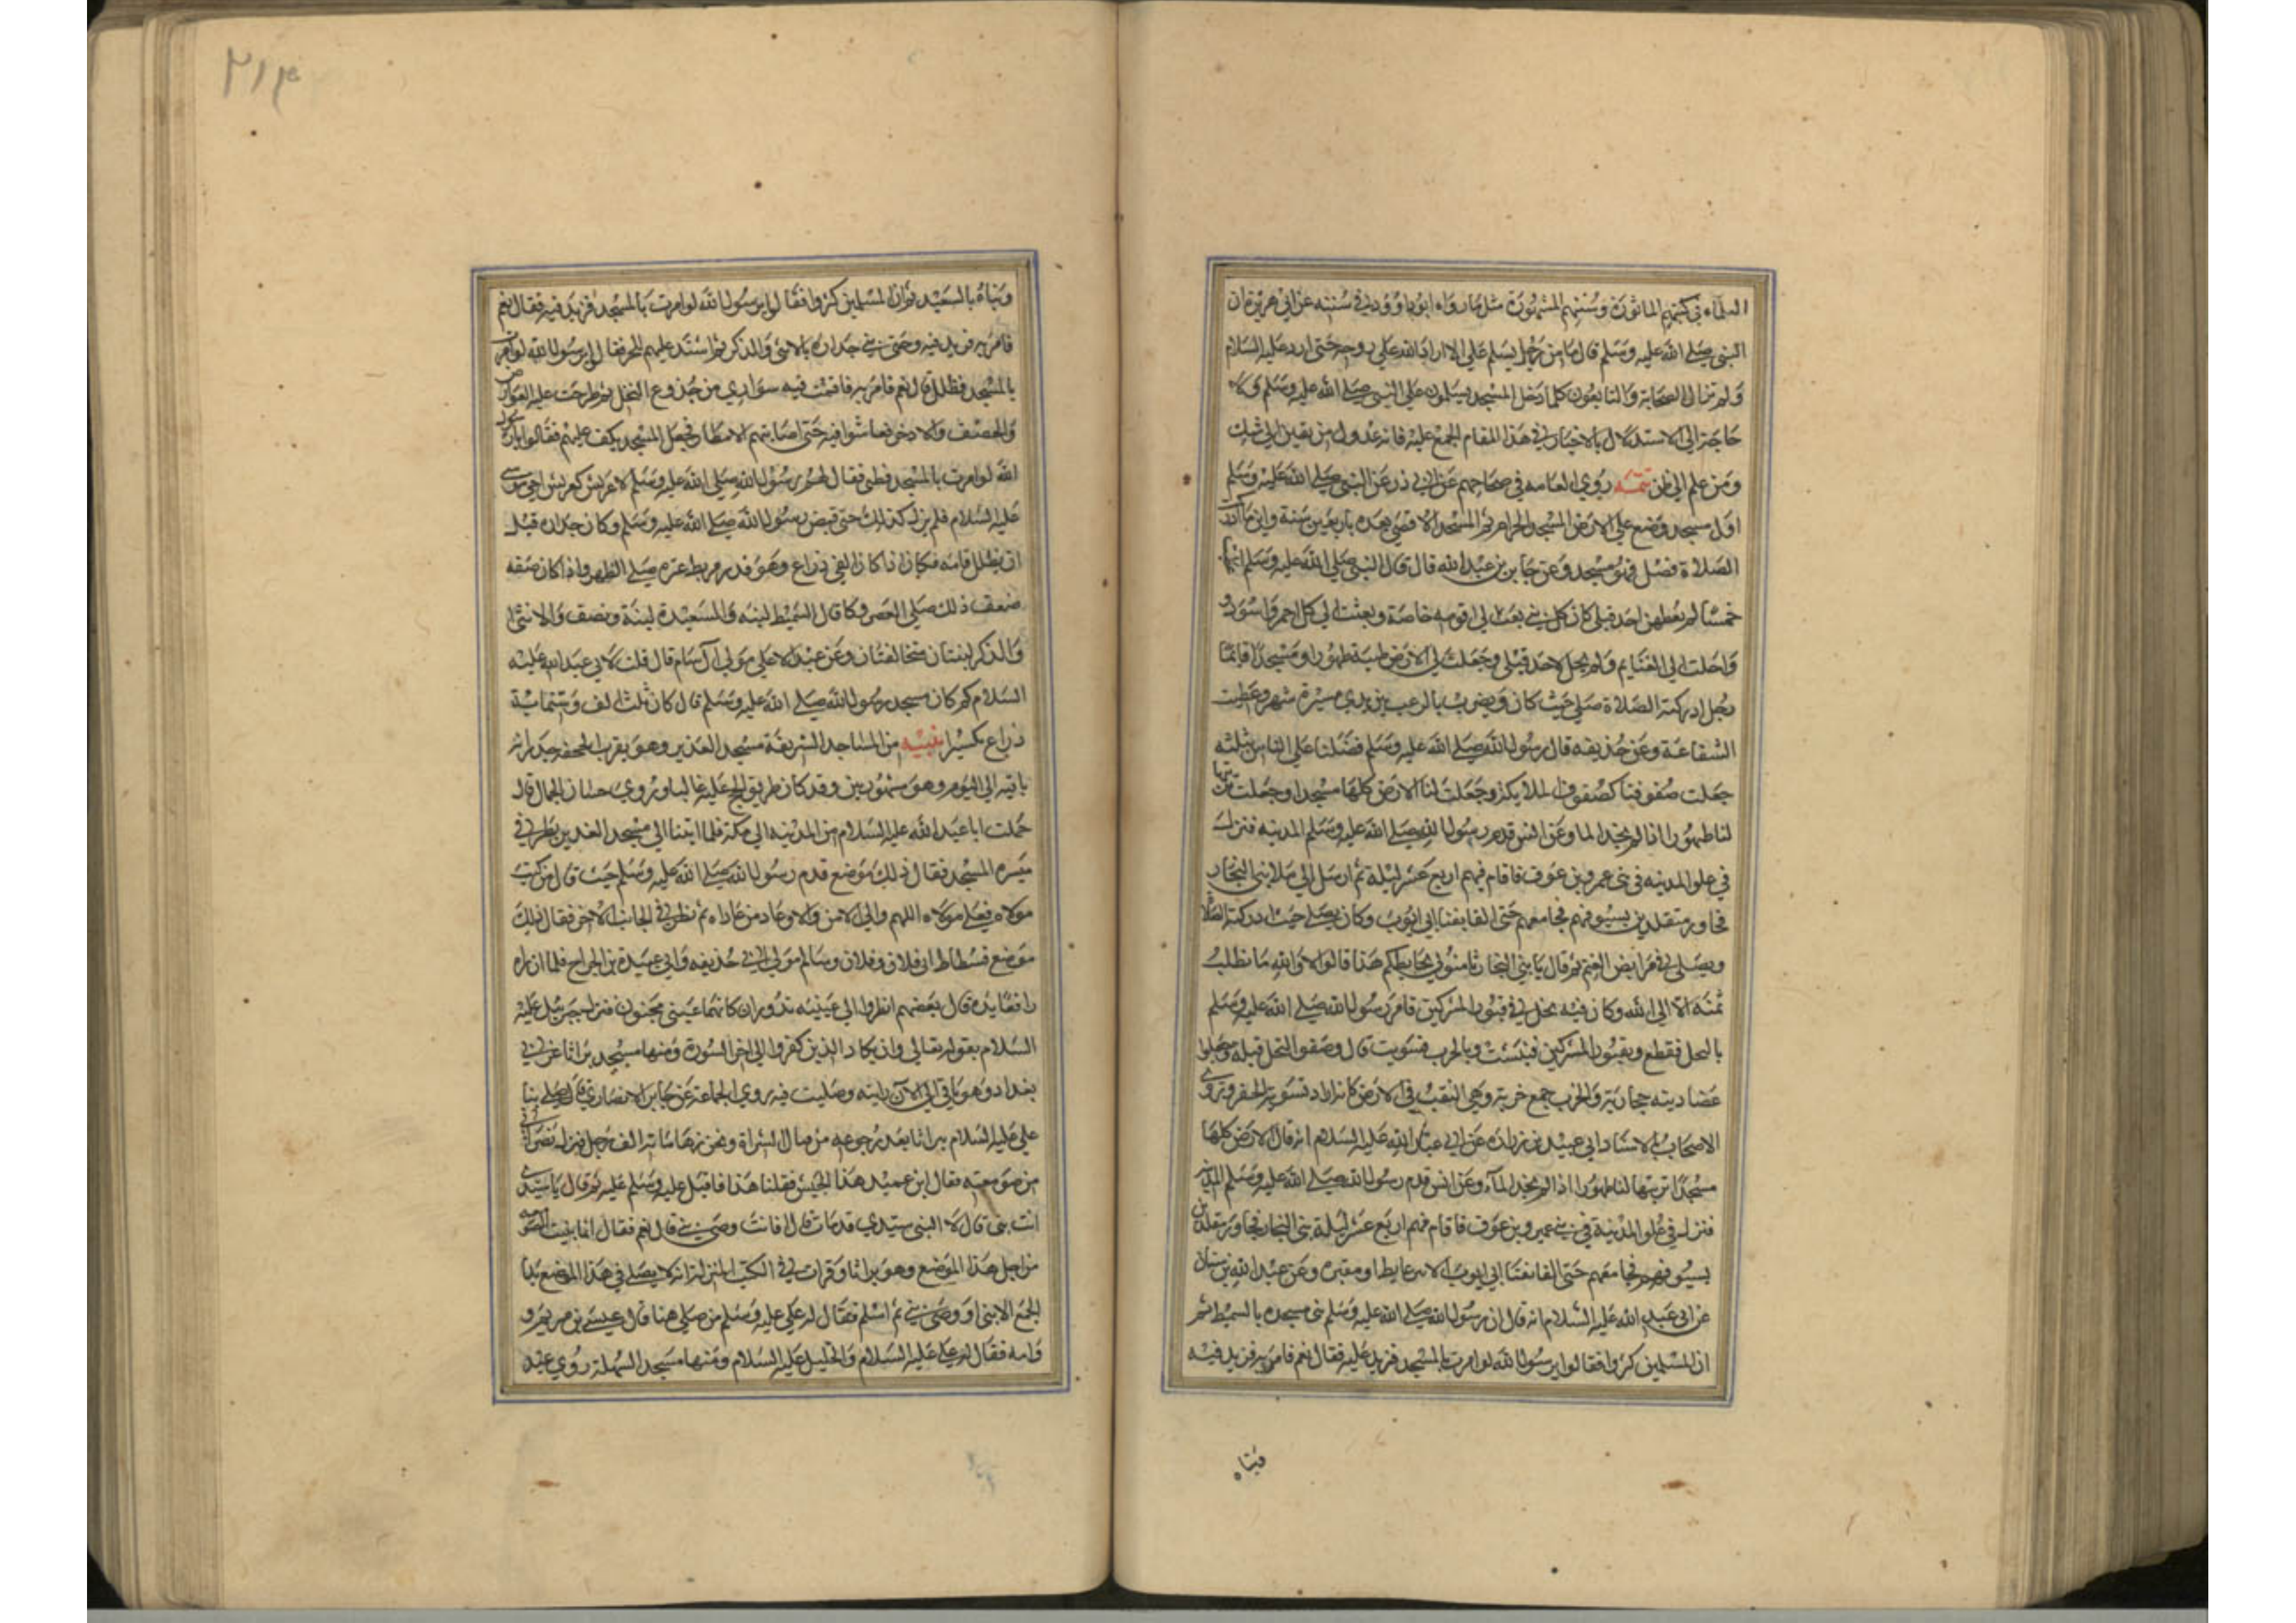 العلماء في كتبهم الماثورة وسننهم المشهورة مثل ما رواه ابو داوود في سننه عن ابي هريرة ان
النبي صلى الله عليه وسلم قال ما من رجل يسلم علي الا اراد الله علي روحي حتى ارد عليه السلام
ولم تزال الصحابة والتابعون كلما دخل المسجد يسلمون على النبي صلى الله عليه وسلم ولا
حاجة الى الاستدلال بالاخبار في هذا المقام المجمع عليه فانه عدول من يقين الى شك
ومن علم الى ظن تتمه روي العامه في صحاحهم عن ابي ذر عن النبي صلى الله عليه وسلم
اول مسجد وضع على الارض المسجد الحرام ثم المسجد الاقصى بعده باربعين سنة واين ما ادركت
الصلاة فصل فهو مسجد وعن جابر بن عبد الله قال قال النبي صلى الله عليه وسلم
خمسا لم يعطهن احد قبلي كان كل نبي بعث الى قومه خاصة وبعثت الى كل احمر واسود و
واحلت الي الغنايم ولم يحل لاحد قبلي وجعلت لي الارض طيبة طهورا ومسجدا فايما
رجل ادركته الصلاة صلى حيث كان ونصرت بالرعب بين يدي مسيرة شهر وعطيت
الشفاعة وعن حذيفه قال رسول الله صلى الله عليه وسلم فضلنا على الناس بثلثه
جعلت صفوفنا كصفوف الملايكة وجعلت لنا الارض كلها مسجدا وجعلت تربتها
لنا طهورا اذا لم نجد الما وعن انس قدم رسول الله صلى الله عليه وسلم المدينه فنزل
في علو المدينه في بني عمرو بن عوف فاقام فيهم اربع عشر ليلة ثم ارسل الى ملا بني النجار
فجاور متقلدين بسيوفهم فجا معهم حتى القا بفنا ابي ايوب وكان يصلي حيث ادركته الصلاة
ويصلي في مرابض الغنم ثم قال يا بني النجار ثامنوني بحايطكم هذا قالوا لا والله ما نطلب
ثمنه الا الى الله وكان فيه نخل في قبور المشركين فامر رسول الله صلى الله عليه وسلم
بالنخل فقطع وبقبور المشركين فنبشت وبالحرب فسويت قال وصفو النخل قبله وجعلوا
عضاديته حجارة والخرب جمع خربة وهي النقب في الارض كانه اراد تسوية الحفر وتروى
الاصحاب بالاسناد ابي عبيد بن زرارة عن ابي عبد الله عليه السلام انه قال الارض كلها
مسجدا تربتها لنا طهورا اذا لم نجد الماء وعن انس قدم رسول الله صلى الله عليه وسلم المدينه
فنزل في علو المدينة في بني عمرو بن عوف فاقام فيهم اربع عشر ليلة بني النجار فجاور متقلدين
بسيوفهم فجا معهم حتى القا بفنا ابي ايوب الا سر عايطا ومقبره وعن عبد الله بن سنان
عن ابي عبد الله عليه السلام انه قال ان رسول الله صلى الله عليه وسلم بنى مسجده بالسميط ثم
ان المسلمين كثروا فقالوا يا رسول الله لو امرت بالمسجد فزيد عليه فقال نعم فامر به فزيد فيه
وبناه
٢١٤
وبناه بالسعيد ثم ان المسلمين كثروا فقالوا يا رسول الله لو امرت بالمسجد فزيد فيه فقال نعم
فامر به فزيد فيه وحتى بني جداره بالانثى والذكر ثم اشتد عليهم الحر فقالوا يا رسول الله لو امرت
بالمسجد فظلل قال نعم فامر به فاقيمت فيه سواري من جذوع النخل ثم طرحت عليه العوارض
والخصف والادخر فعاشوا فيه حتى اصابتهم الامطار فجعل المسجد يكف عليهم فقالوا يا رسول
الله لو امرت بالمسجد فطين فقال لهم رسول الله صلى الله عليه وسلم لا عريش كعريش اخي موسى
عليه السلام فلم يزل كذلك حتى قبض رسول الله صلى الله عليه وسلم وكان جداره قبل
ان يظلل قامه فكان اذا كان الفي ذراع وهو قدر مربط عنز صلى الظهر واذا كان ضعفه
ضعف ذلك صلى العصر وكا قال السميط لبنه والسعيدة لبنة ونصف والانثى
والذكر لبنتان متخالفتان وعن عبد الاعلى مولى آل سام قال قلت لابي عبد الله عليه
السلام كم كان مسجد رسول الله صلى الله عليه وسلم قال كان ثلث الف وستماية
ذراع تكسيرا تنبيه من المساجد الشريفة مسجد الغدير وهو بقرب الجحفه جدرانه
باقيه الى اليوم وهو مشهور بين وقد كان طريق الحج عليه غالبا وروي حسان الجمال قال
حملت ابا عبد الله عليه السلام من المدينه الى مكة فلما اتينا الى مسجد الغدير نظر في
ميسره المسجد فقال ذلك موضع قدم رسول الله صلى الله عليه وسلم حيث قال من كنت
مولاه فعلي مولاه اللهم والي الا من والاه وعاد من عاداه ثم نظر في الجانب الاخر فقال ذلك
موضع فسطاط ابي فلان وفلان وسالم مولى ابي حذيفه وابي عبيدة بن الجراح فلما ان راه
رافعا يده قال بعضهم انظروا الى عينيه تدوران كانهما عيني مجنون فنزل جبريل عليه
السلام بقوله تعالى وان يكاد الذين كفروا الى اخر السورة ومنها مسجد براثا غربي
بغداد وهو باقي الى الآن رايته وصليت فيه روي الجماعة عن جابر الانصاري قال صلى بنا
علي عليه السلام ببراثا بعد رجوعه من قتال الشراة ونحن زها ماية الف رجل فنزل نصراني
من صومعته فقال اين عميد هذا الجيش فقلنا هذا فاقبل عليه وسلم عليه ثم قال يا سيدي
انت نبي قال لا النبي سيدي قد مات قال افانت وصي نبي قال نعم فقال انا بنيت الصومعة
من اجل هذا الموضع وهو براثا وقرات في الكتب المنزلة انه لا يصلي في هذا الموضع بذا
الجمع الا نبي او وصي نبي ثم اسلم فقال له علي عليه وسلم من صلى هنا قال عيسى بن مريم
وامه فقال له علي عليه السلام والخليل عليه السلام ومنها مسجد السهلة روي عبد